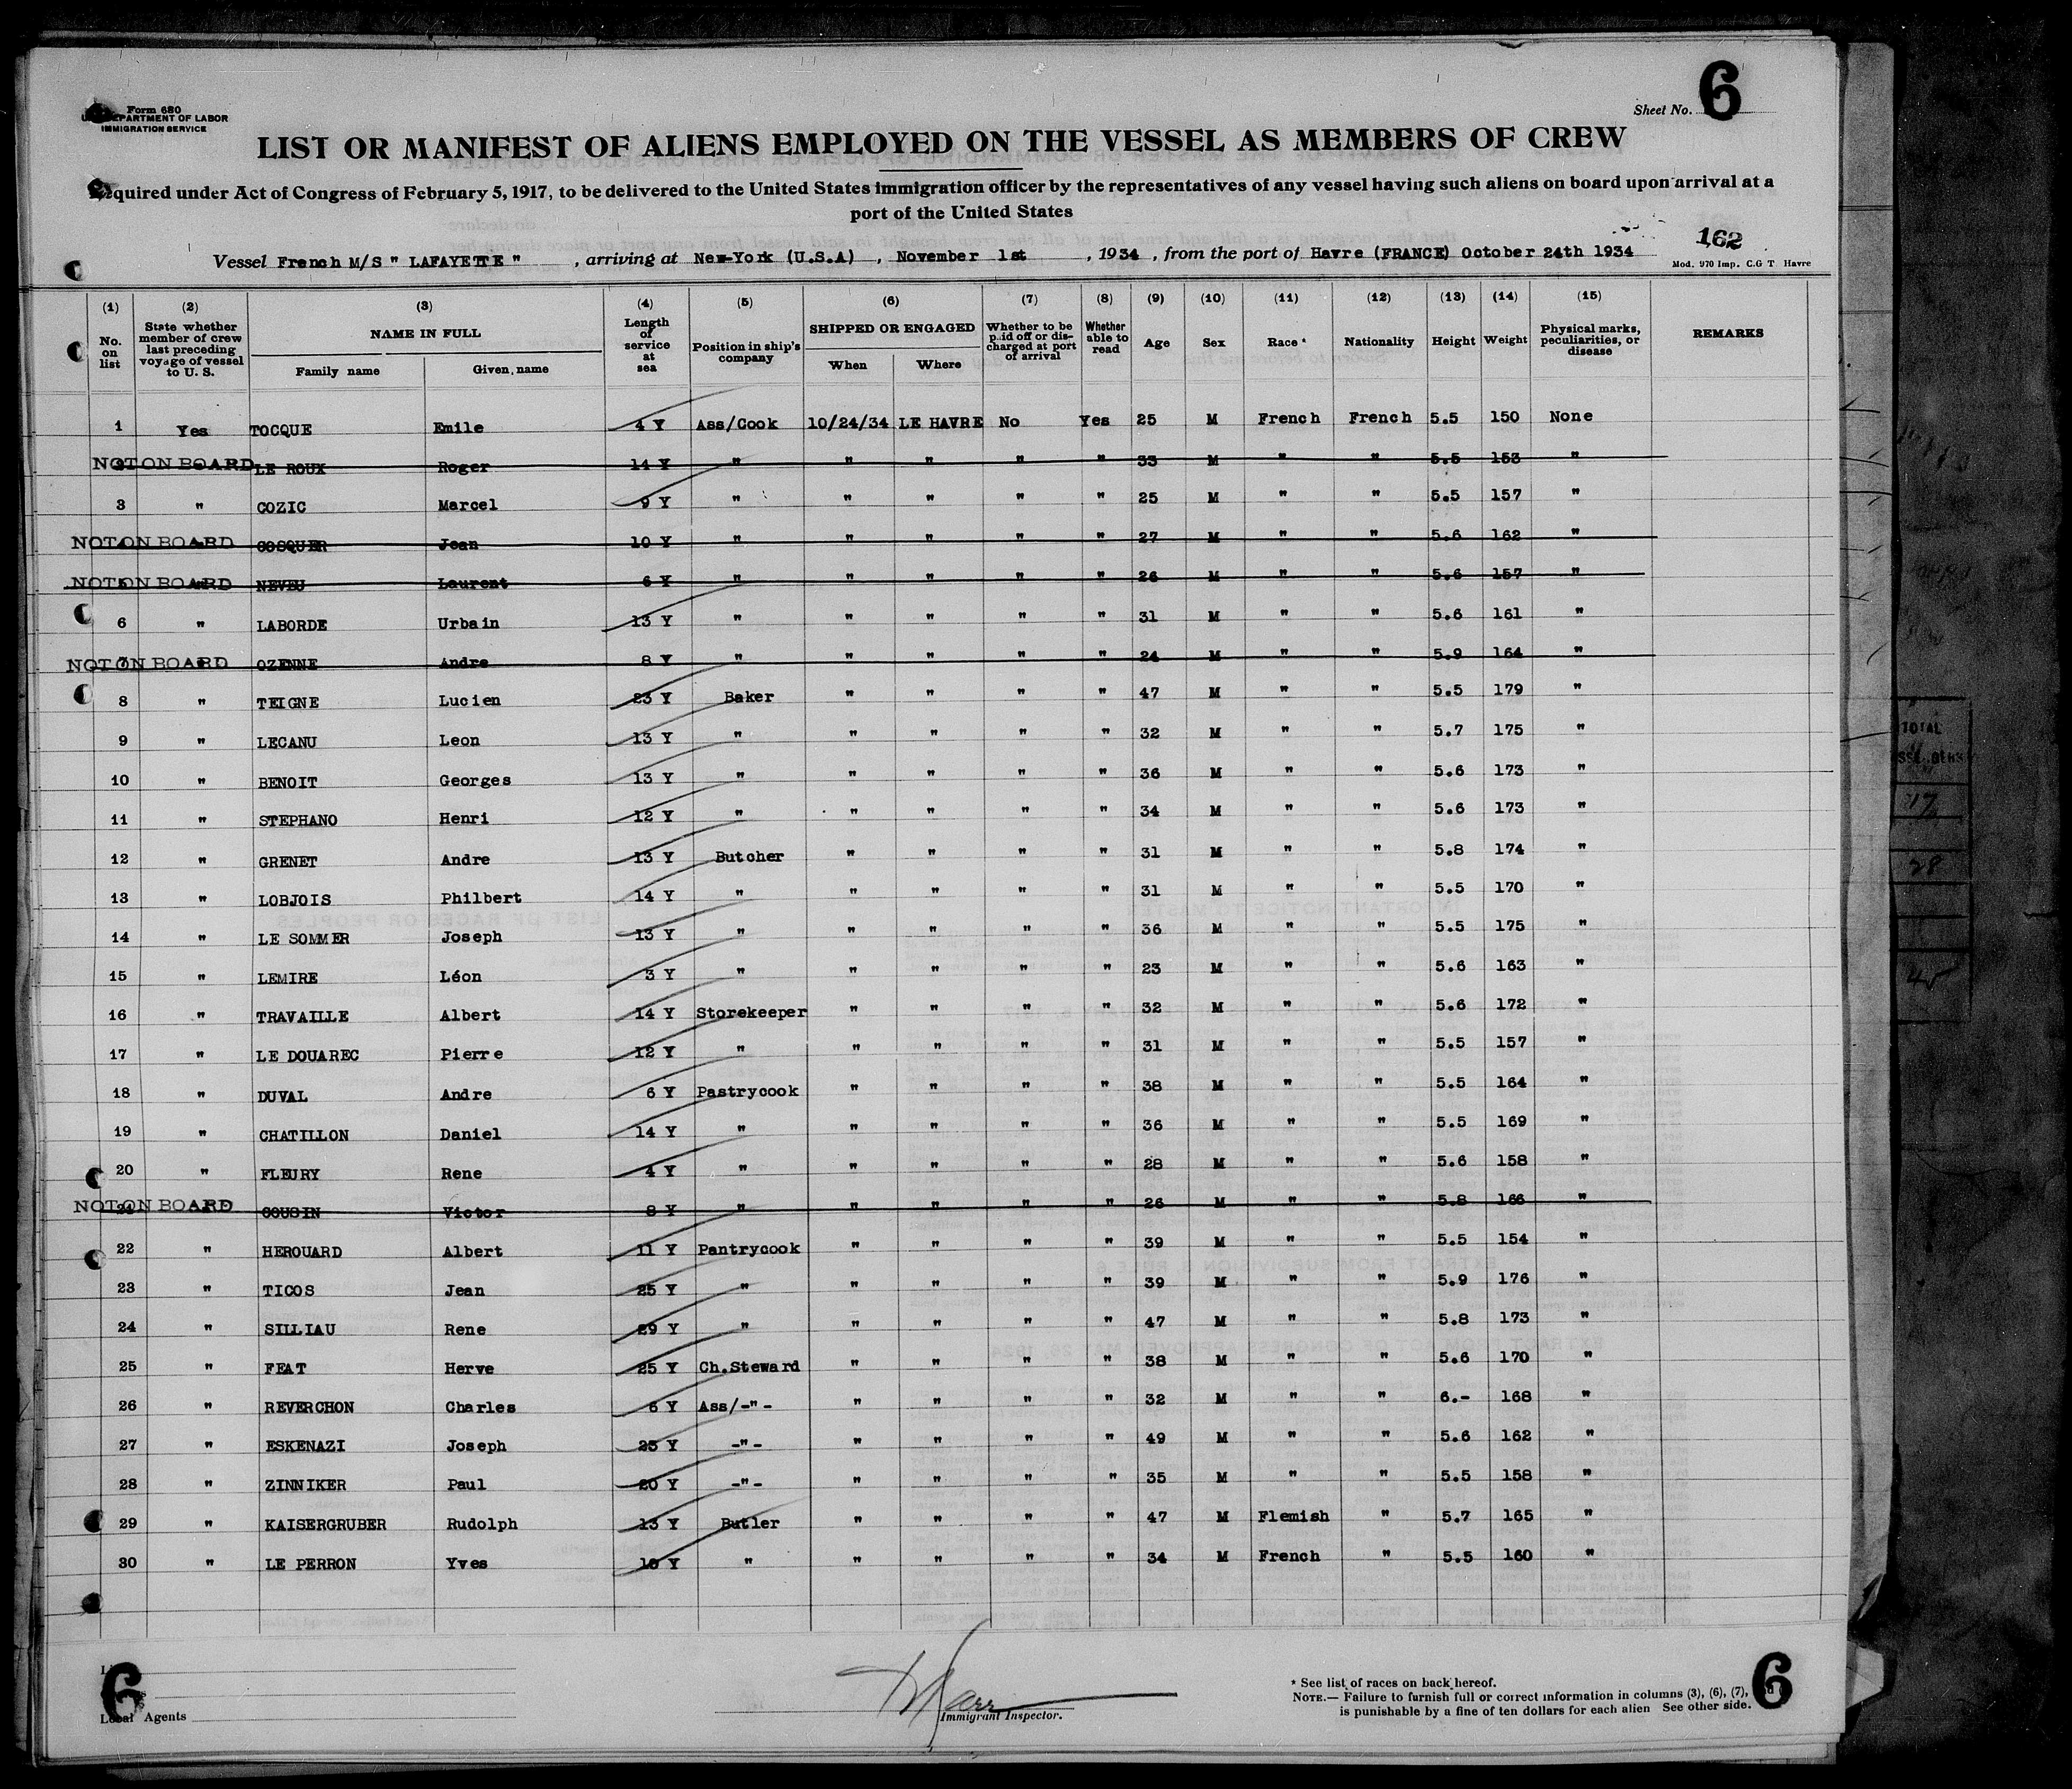 Form 680
DEPARTMENT OF LABOR
IMMIGRATION SERVICE
Sheet No. 6
LIST OR MANIFEST OF ALIENS EMPLOYED ON THE VESSEL AS MEMBERS OF CREW
Required under Act of Congress of February 5, 1917, to be delivered to the United States immigration officer by the representatives of any vessel having such aliens on board upon arrival at a
port of the United States
162
Vessel French M/S " LAFAYETTE " , arriving at New-York (U.S.A) , November 1st , 1934 , from the port of Havre (FRANCE) October 24th 1934
Mod. 970 Imp. C.G T Havre
(1) (2) (3) (4) (5) (6) (7) (8) (9) (10) (11) (12) (13) (14) (15)
No. on list State whether member of crew last preceding voyage of vessel to U. S. NAME IN FULL Family name Given name Length of service at sea Position in ship's company SHIPPED OR ENGAGED When Where Whether to be paid off or discharged at port of arrival Whether able to read Age Sex Race * Nationality Height Weight Physical marks, peculiarities, or disease REMARKS
1 Yes TOCQUE Emile 4 Y Ass/Cook 10/24/34 LE HAVRE No Yes 25 M French French 5.5 150 None
NOT ON BOARD LE ROUX Roger 14 Y " " " " " 33 M " " 5.5 153 "
3 " COZIC Marcel 9 Y " " " " " 25 M " " 5.5 157 "
NOT ON BOARD COSQUER Jean 10 Y " " " " " 27 M " " 5.6 162 "
NOT ON BOARD NEVEU Laurent 6 Y " " " " " 26 M " " 5.6 157 "
6 " LABORDE Urbain 13 Y " " " " " 31 M " " 5.6 161 "
NOT ON BOARD 7 OZENNE Andre 8 Y " " " " " 24 M " " 5.9 164 "
8 " TEIGNE Lucien 23 Y Baker " " " " 47 M " " 5.5 179 "
9 " LECANU Leon 13 Y " " " " " 32 M " " 5.7 175 "
10 " BENOIT Georges 13 Y " " " " " 36 M " " 5.6 173 "
11 " STEPHANO Henri 12 Y " " " " " 34 M " " 5.6 173 "
12 " GRENET Andre 13 Y Butcher " " " " 31 M " " 5.8 174 "
13 " LOBJOIS Philbert 14 Y " " " " " 31 M " " 5.5 170 "
14 " LE SOMMER Joseph 13 Y " " " " " 36 M " " 5.5 175 "
15 " LEMIRE Léon 3 Y " " " " " 23 M " " 5.6 163 "
16 " TRAVAILLE Albert 14 Y Storekeeper " " " " 32 M " " 5.6 172 "
17 " LE DOUAREC Pierre 12 Y " " " " " 31 M " " 5.5 157 "
18 " DUVAL Andre 6 Y Pastrycook " " " " 38 M " " 5.5 164 "
19 " CHATILLON Daniel 14 Y " " " " " 36 M " " 5.5 169 "
20 " FLEURY Rene 4 Y " " " " " 28 M " " 5.6 158 "
NOT ON BOARD 21 COUSIN Victor 8 Y " " " " " 26 M " " 5.8 166 "
22 " HEROUARD Albert 11 Y Pantrycook " " " " 39 M " " 5.5 154 "
23 " TICOS Jean 25 Y " " " " " 39 M " " 5.9 176 "
24 " SILLIAU Rene 29 Y " " " " " 47 M " " 5.8 173 "
25 " FEAT Herve 25 Y Ch.Steward " " " " 38 M " " 5.6 170 "
26 " REVERCHON Charles 6 Y Ass/-"- " " " " 32 M " " 6.- 168 "
27 " ESKENAZI Joseph 25 Y -"- " " " " 49 M " " 5.6 162 "
28 " ZINNIKER Paul 20 Y -"- " " " " 35 M " " 5.5 158 "
29 " KAISERGRUBER Rudolph 13 Y Butler " " " " 47 M Flemish " 5.7 165 "
30 " LE PERRON Yves 10 Y " " " " " 34 M French " 5.5 160 "
TOTAL
17
28
45
6
Local Agents
Immigrant Inspector.
* See list of races on back hereof.
NOTE.— Failure to furnish full or correct information in columns (3), (6), (7),
is punishable by a fine of ten dollars for each alien See other side.
6